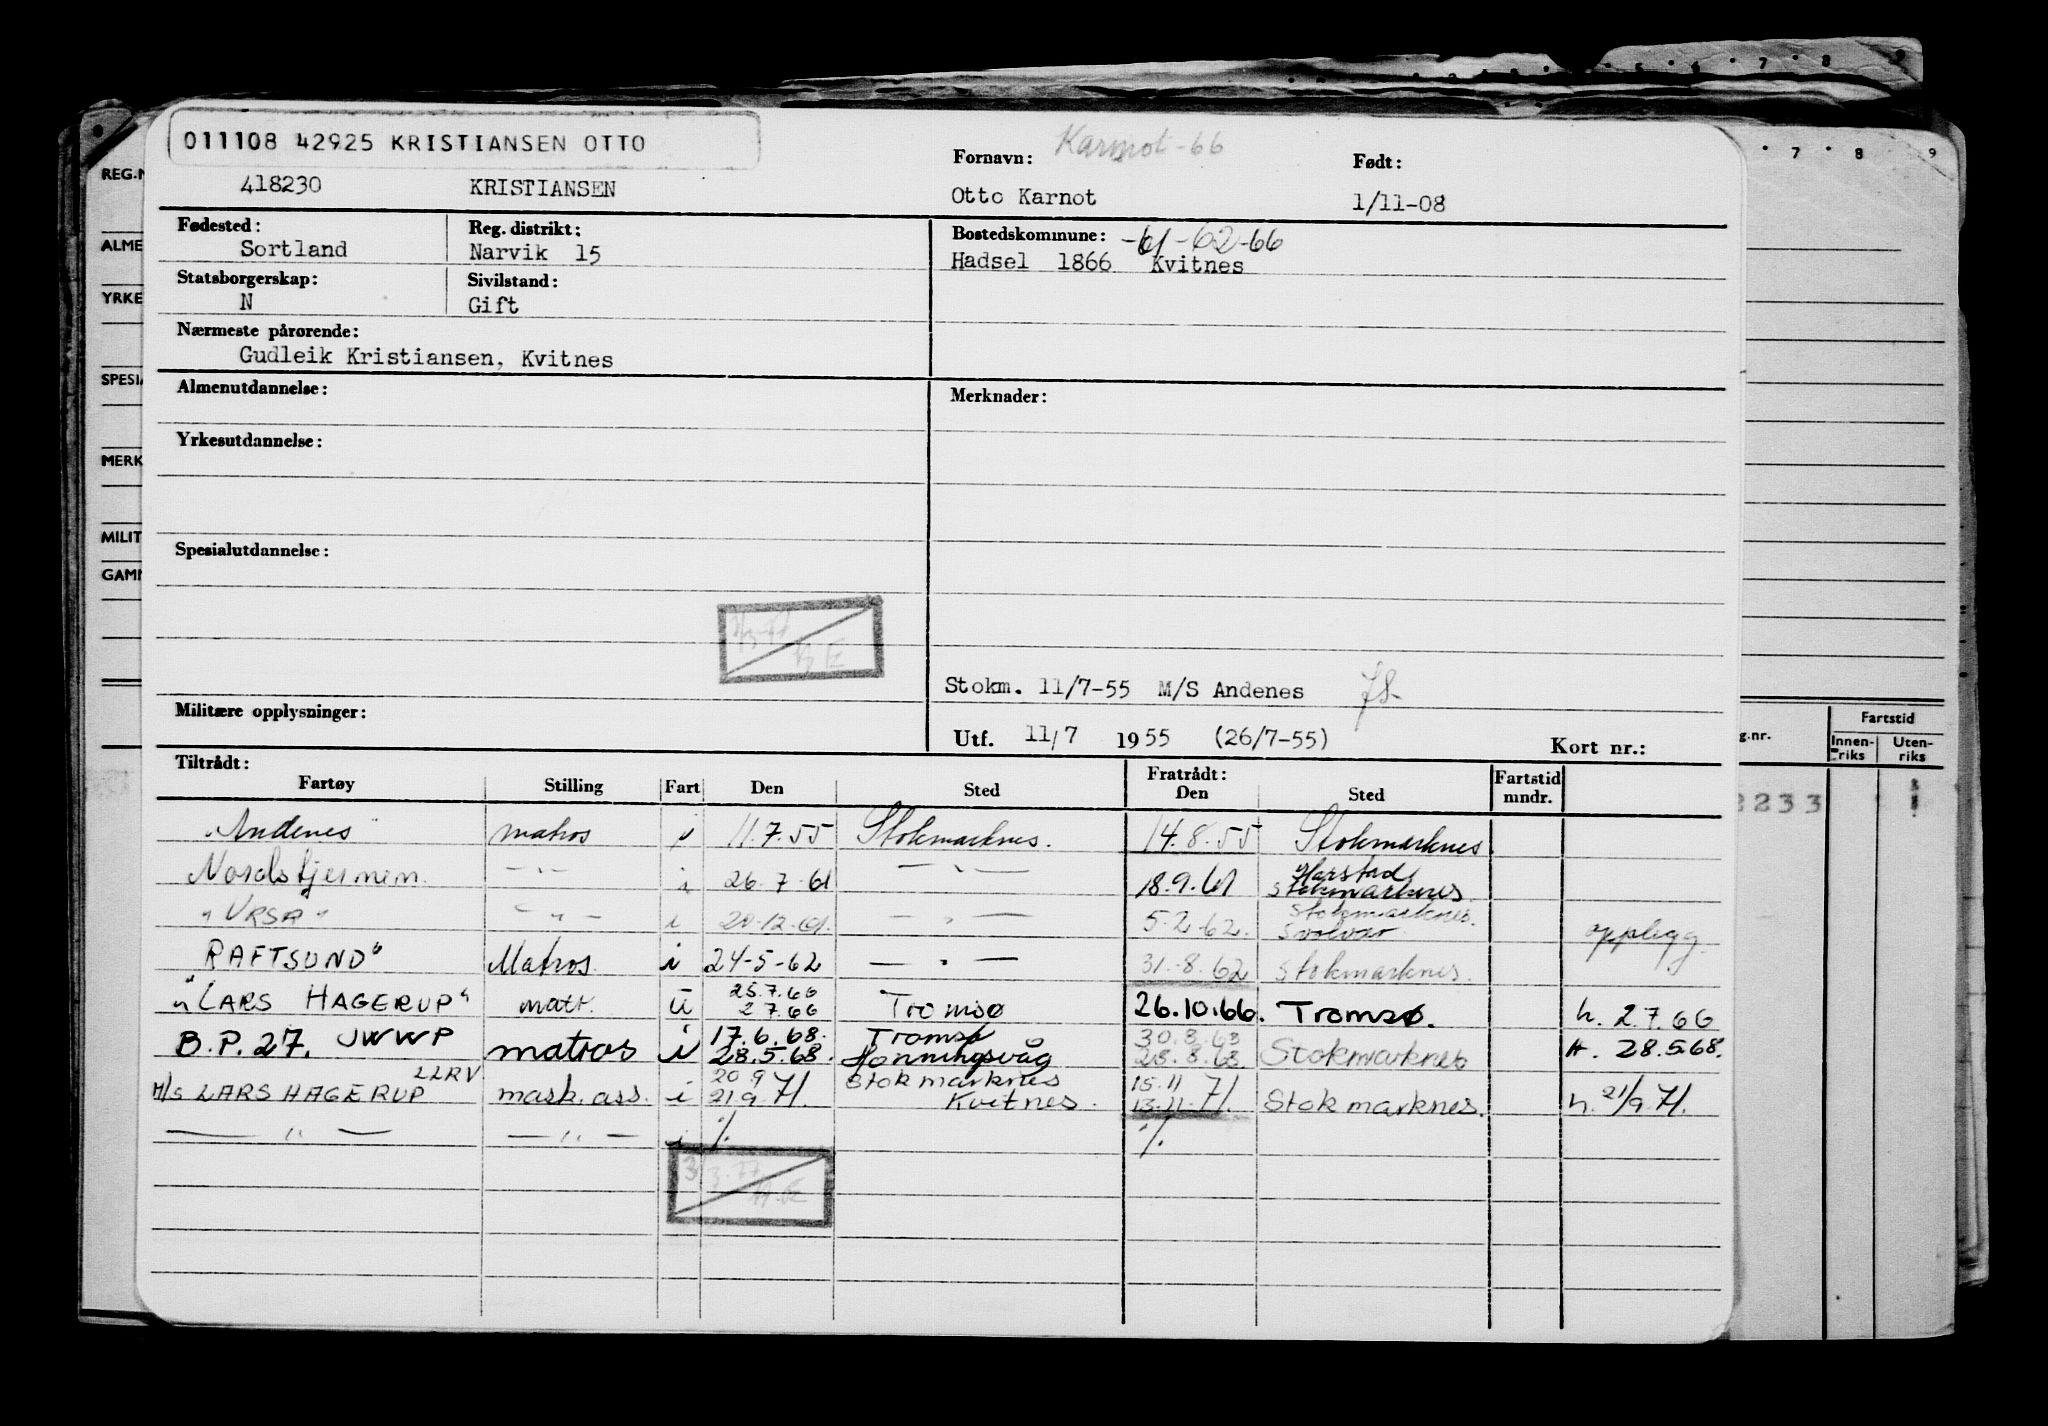 011108 42925 KRISTIANSEN OTTO
418230 KRISTIANSEN
Fornavn: Karnot-66 Født:
Otto Karnot 1/11-08
Fødested: Reg. distrikt: Bostedskommune: -61-62-66
Sortland Narvik 15 Hadsel 1866 Kvitnes
Statsborgerskap: Sivilstand:
N Gift
Nærmeste pårørende:
Gudleik Kristiansen, Kvitnes
Almenutdannelse: Merknader:
Yrkesutdannelse:
Spesialutdannelse:
Stokm. 11/7-55 M/S Andenes
Militære opplysninger:
Utf. 11/7 1955 (26/7-55) Kort nr.:
Tiltrådt: Fratrådt:
Fartøy Stilling Fart Den Sted Den Sted Fartstid mndr.
"Andenes" matros i 11.7.55 Stokmarknes. 14.8.55 Stokmarknes
Nordstjernen — " — i 26.7-61 — " — 18.9.61 Harstad Stokmarknes.
"URSA" — " — i 20-12-61. — " — 5-2-62. Stokmarknes. Svolvær opplegg
RAFTSUND" Matros. i 24-5-62 — " — 31.-8.62 Stokmarknes.
"LARS HAGERUP" matr. u 25.7.66 2 7.66 Tromsø 26.10.66. Tromsø. h. 2.7.66
B.P. 27. JWWP matros i 17.6.68. 28.5.68. Tromsø Honningsvåg 30.8.68 28.8.68 Stokmarknes h. 28.5.68.
M/S LARS HAGERUP LLRV mask. ass. i 20.9 21.9.71. Stokmarknes Kvitnes. 15.11 13.11.71. Stokmarknes. h. 21/9.71.
— " — — " — i ./. ./.
REG.N
ALME
YRKE
SPESIA
MERK
MILIT
GAMM
5 6 7 8 9
7 8 9
Fartstid
g.nr. Innenriks Utenriks
2233